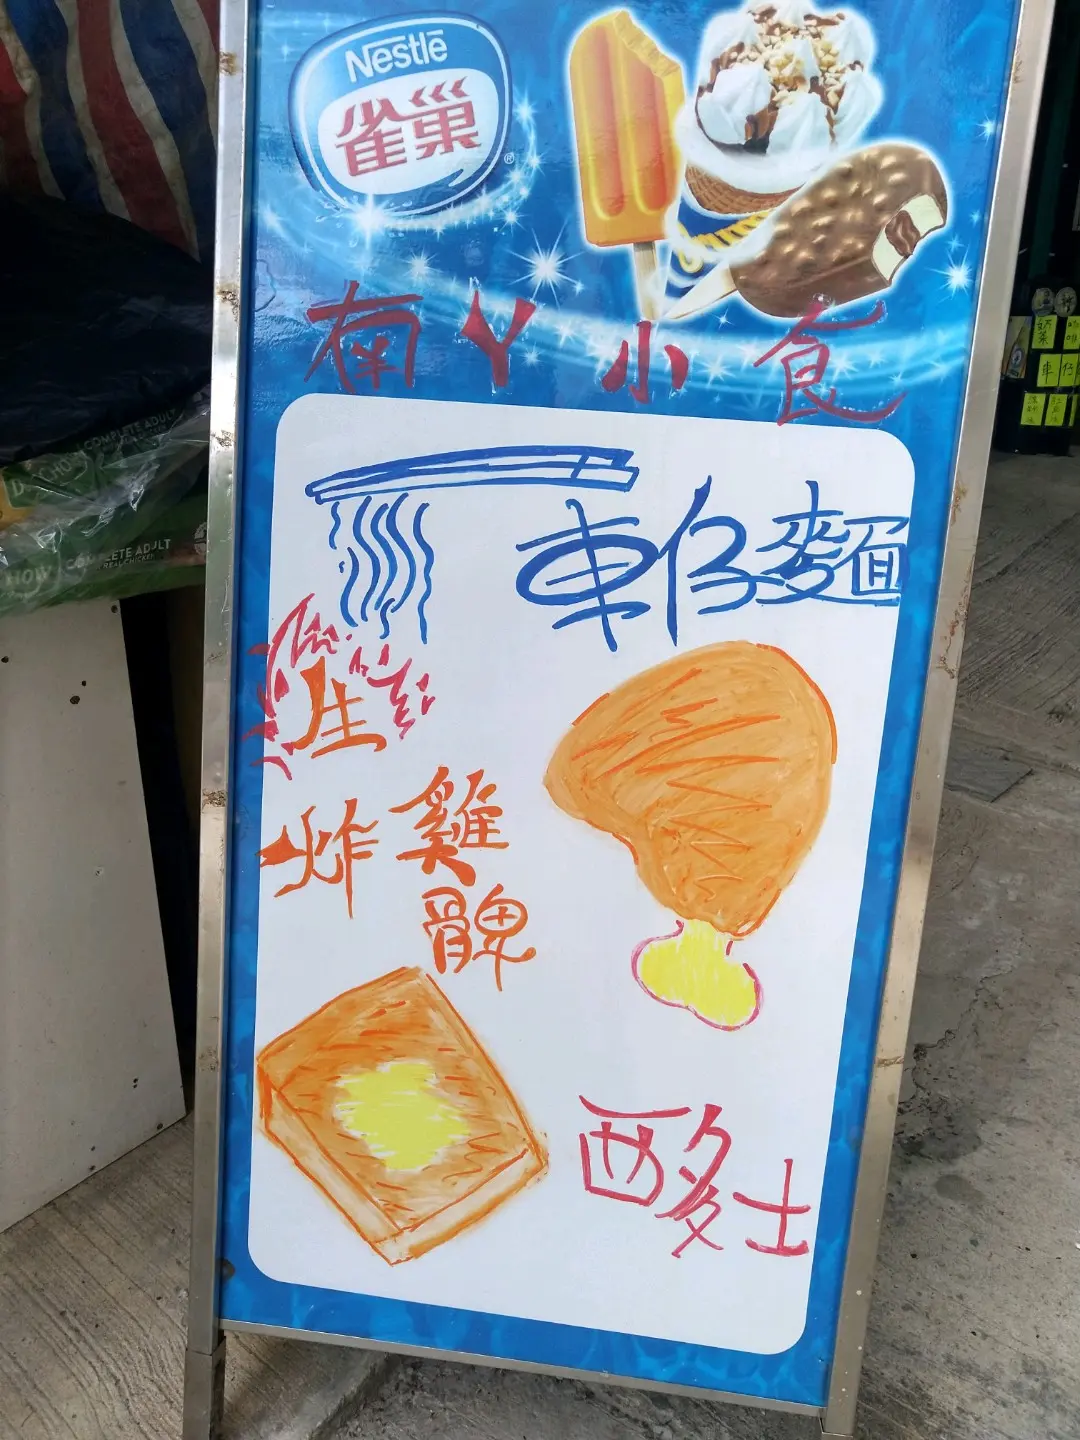 Nestlé
雀巢
®
南丫小食
車仔麵
生
炸雞
髀
西多士
COMPLETE ADULT
HOW
COMPLETE ADULT
REAL CHICKEN
車仔